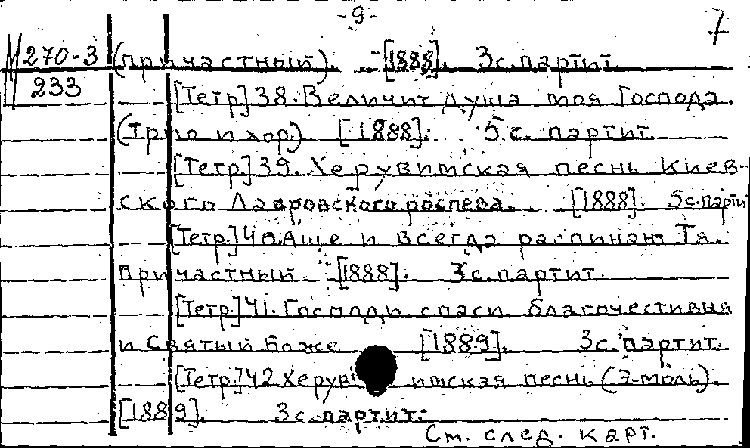 -9- 7
М 270-3 (причастный). [1888]. 3 с. партит.
233 [Тетр] 38. Величит душа моя Господа.
(трио и хор) [1888]. 5 с. партит.
[Тетр] 39. Херувимская песнь Киев-
ского Лавровского роспева. [1888]. 5 с. парти
[Тетр.] 40. Аще и всегда распинаю Тя.
Причастный. [1888]. 3 с. партит.
[Тетр.] 41. Господи спаси благочестивыя
и Святый Боже [1889]. 3 с. партит.
[Тетр.] 42 Херувимская песнь (э-моль).
[1889]. 3 с. партит.
См. след. карт.